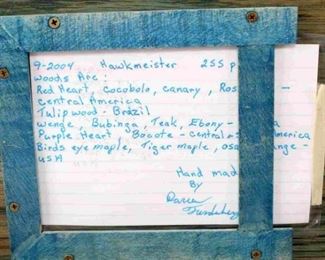 9-2004 Hawkmeister 255 p
woods Are:
Red Heart, Cocobolo, canary, Ros -
central America
Tulip wood - Brazil
wenge, Bubinga, Teak, Ebony - a
Purple Heart Bocote - central America
Birds eye maple, Tiger maple, osa ange -
USA
Hand mad
By